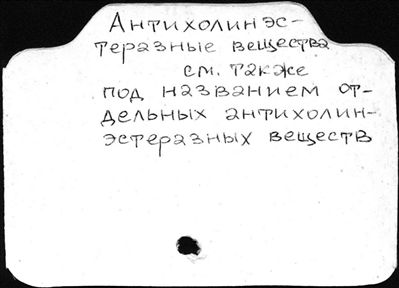 Антихолинэс-
теразные вещества
см. также
под названием от-
дельных антихолин-
эстеразных веществ